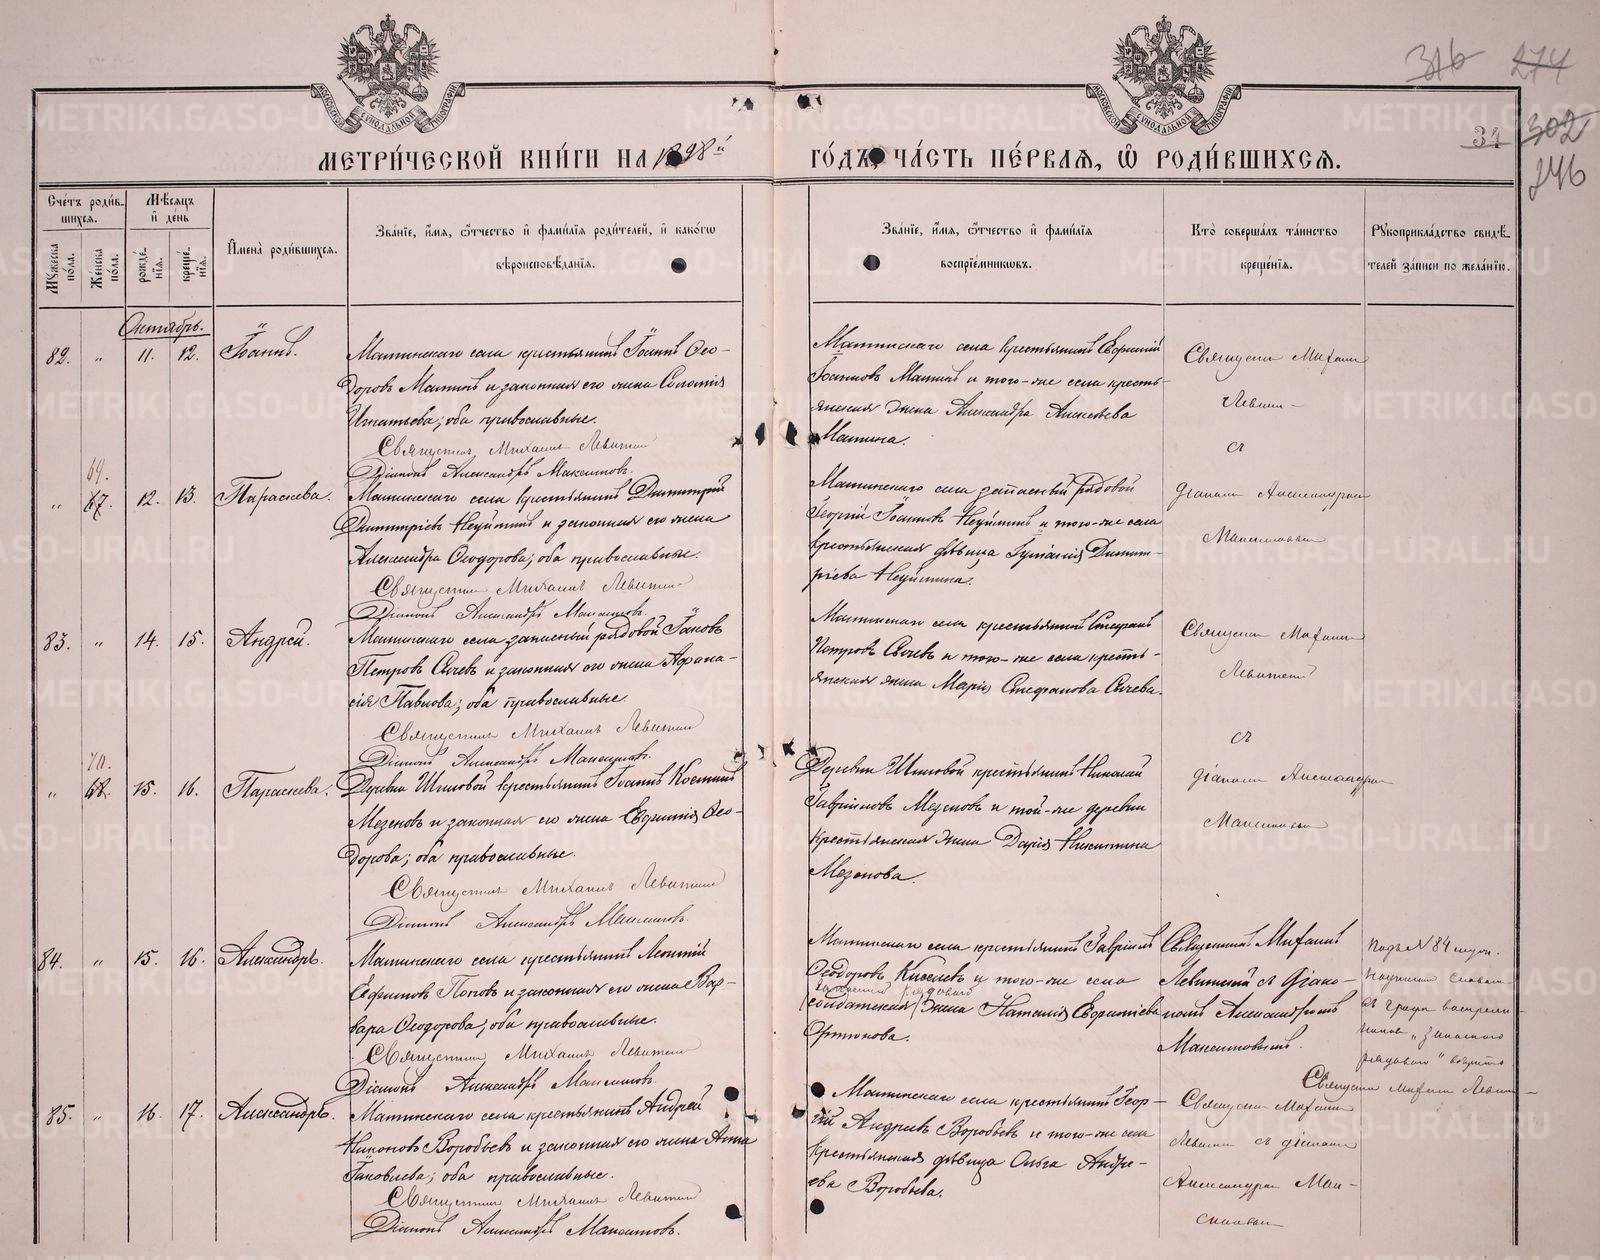 316 274
34 302
246
МЕТРИ́ЧЕСКОЙ КНИ́ГИ НА 1898й ГО́ДЪ, ЧА́СТЬ ПЕ́РВАЯ, Ѡ҆ РОДИ́ВШИХСЯ.
МОСКОВСКОЙ СУНОДАЛЬНОЙ ТИПОГРАФІИ
МОСКОВСКОЙ СУНОДАЛЬНОЙ ТИПОГРАФІИ
Сче́тъ роди́вшихся.
Мꙋжеска по́ла.
Же́нска по́ла.
Мѣ́сяцъ и҆ де́нь
рожде́нїя.
креще́нїя.
И҆мена̀ роди́вшихся.
Зва́нїе, и҆́мя, ѻ҆́тчество и҆ фами́лїя роди́телей, и҆ како́гѡ вѣроисповѣ́данїя.
Зва́нїе, и҆́мя, ѻ҆́тчество и҆ фами́лїя воспрїе́мниковъ.
Кто̀ соверша́лъ та́инство креще́нїя.
Рꙋкоприкла́дство свидѣ́телей за́писи по жела́нїю.
Октябрь.
82. „ 11. 12. Іоаннъ.
Маминскаго села крестьянинъ Іоаннъ Ѳео-
доровъ Маминъ и законная его жена Соломія
Игнатьева; оба православные.
Священникъ Михаилъ Левитскій
Діаконъ Александръ Максимовъ.
Маминскаго села крестьянинъ Евфимій
Іоанновъ Маминъ и того-же села кресть-
янская жена Александра Алексѣева
Мамина.
Священникъ Михаилъ
съ
69.
„ 67. 12. 13. Параскева.
Маминскаго села крестьянинъ Димитрій
Димитріевъ Неуйминъ и законная его жена
Александра Ѳеодорова; оба православные.
Священникъ Михаилъ Левитскій
Діаконъ Александръ Максимовъ.
Маминскаго села запасный рядовой
Георгій Іоанновъ Неуйминъ и того-же села
крестьянская дѣвица Димит-
ріева Неуймина.
діакономъ Александромъ
Максимовымъ
83. „ 14. 15. Андрей.
Маминскаго села запасный рядовой Іаковъ
Петровъ Сычевъ и законная его жена Афана-
сія Павлова; оба православные.
Священникъ Михаилъ Левитскій
Діаконъ Александръ Максимовъ.
Маминскаго села крестьянинъ Стефанъ
Петровъ Сычевъ и того-же села кресть-
янская жена Марія Стефанова Сычева.
Священникъ Михаилъ
Левитскій
съ
70.
„ 68. 15. 16. Параскева.
Деревни Шиловой крестьянинъ Іоаннъ Косминъ
Мезеновъ и законная его жена Евфимія Ѳео-
дорова; оба православные.
Священникъ Михаилъ Левитскій
Діаконъ Александръ Максимовъ.
Деревни Шиловой крестьянинъ Николай
Гавріиловъ Мезеновъ и той-же деревни
крестьянская жена Дарія Никитина
Мезенова.
діакономъ Александромъ
Максимовымъ
84. „ 15. 16. Александръ.
Маминскаго села крестьянинъ Леонтій
Ефимовъ Поповъ и законная его жена Вар-
вара Ѳеодорова; оба православные.
Священникъ Михаилъ Левитскій
Діаконъ Александръ Максимовъ.
Маминскаго села крестьянинъ Гавріилъ
Ѳеодоровъ Киселевъ и того-же села
запаснаго рядоваго
солдатская жена Наталія Евфиміева
Ортюкова.
Священникъ Михаилъ
Левитскій съ діако-
номъ Александромъ
Максимовымъ.
Подъ № 84
въ графѣ воспріем-
никовъ „запаснаго
рядоваго“
Священникъ Михаилъ
85. „ 16. 17. Александръ.
Маминскаго села крестьянинъ Андрей
Никоновъ Воробьевъ и законная его жена Анна
Іаковлева; оба православные.
Священникъ Михаилъ Левитскій
Діаконъ Александръ Максимовъ.
Маминскаго села крестьянинъ Геор-
гій Андреевъ Воробьевъ и того-же села
крестьянская дѣвица Ольга Андре-
ева Воробьева.
Священникъ Михаилъ
съ діакономъ
Александромъ Мак-
симовымъ
METRIKI.GASO-URAL.RU